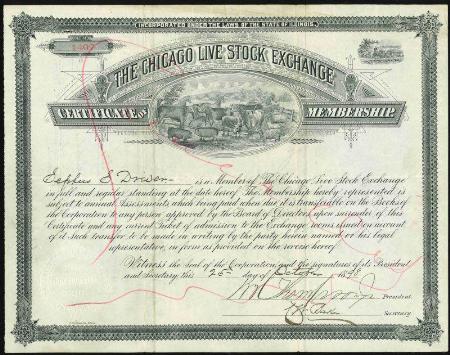 INCORPORATED UNDER THE LAWS OF THE STATE OF ILLINOIS.
THE CHICAGO LIVE STOCK EXCHANGE
CERTIFICATE OF MEMBERSHIP
is a Member of The Chicago Live Stock Exchange
in full and regular standing at the date hereof. The Membership hereby represented is
subject to annual Assessments which being paid when due it is transferable on the Books of
the Corporation to any person approved by the Board of Directors upon surrender of this
Certificate and any current Ticket of admission to the Exchange rooms issued on account
of it such transfer to be made in writing by the party herein named or his legal
representative, in form as provided on the reverse hereof.
Witness the seal of the Corporation and the signatures of its President
and Secretary this 25 day of October 1898
President
Secretary